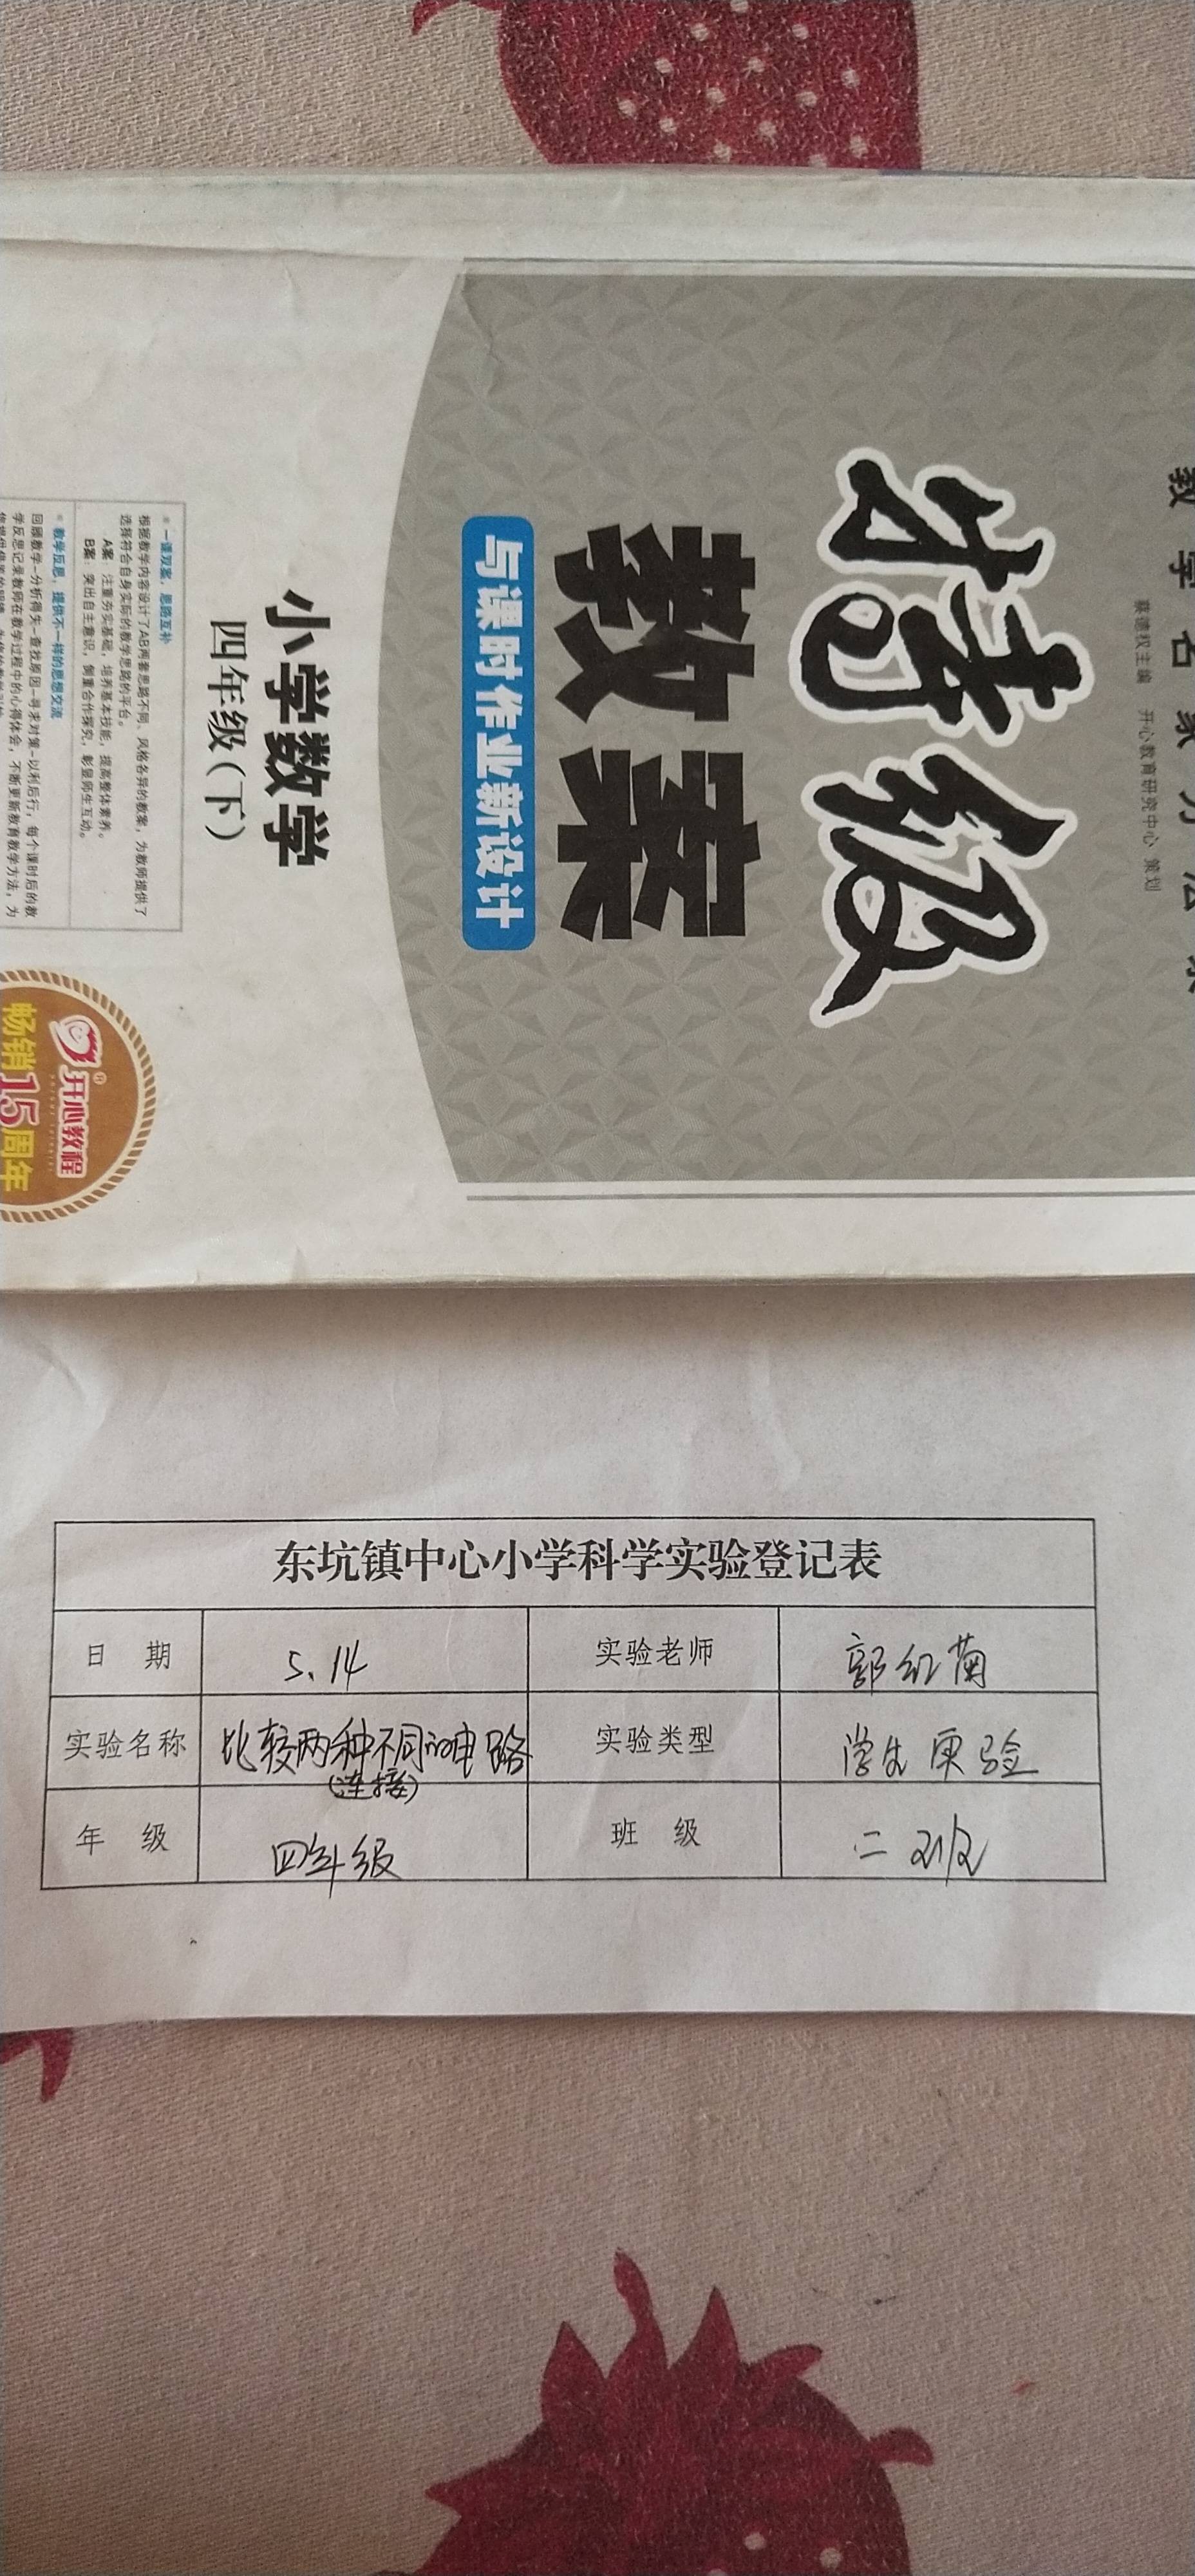 教学名家方法系
蔡德权主编 开心教育研究中心 策划
特级
教案
与课时作业新设计
小学数学
四年级(下)
一课双案,思路互补
根据教学内容设计了AB两套思路不同、风格各异的教案,为教师提供了
选择符合自身实际的教学思路的平台。
A案:注重夯实基础,培养基本技能,提高整体素养。
B案:突出自主意识,侧重合作探究,彰显师生互动。
教学反思,提供不一样的思想交流
回顾教学-分析得失-查找原因-寻求对策-以利后行,每个课时后的教
学反思记录教师在教学过程中的心得体会,不断更新教育教学方法,为
开心教程
畅销15周年
东坑镇中心小学科学实验登记表
日 期 5.14 实验老师 郭红菊
实验名称 比较两种不同的电路 实验类型 学生实验
(连接)
年 级 四年级 班 级 二班